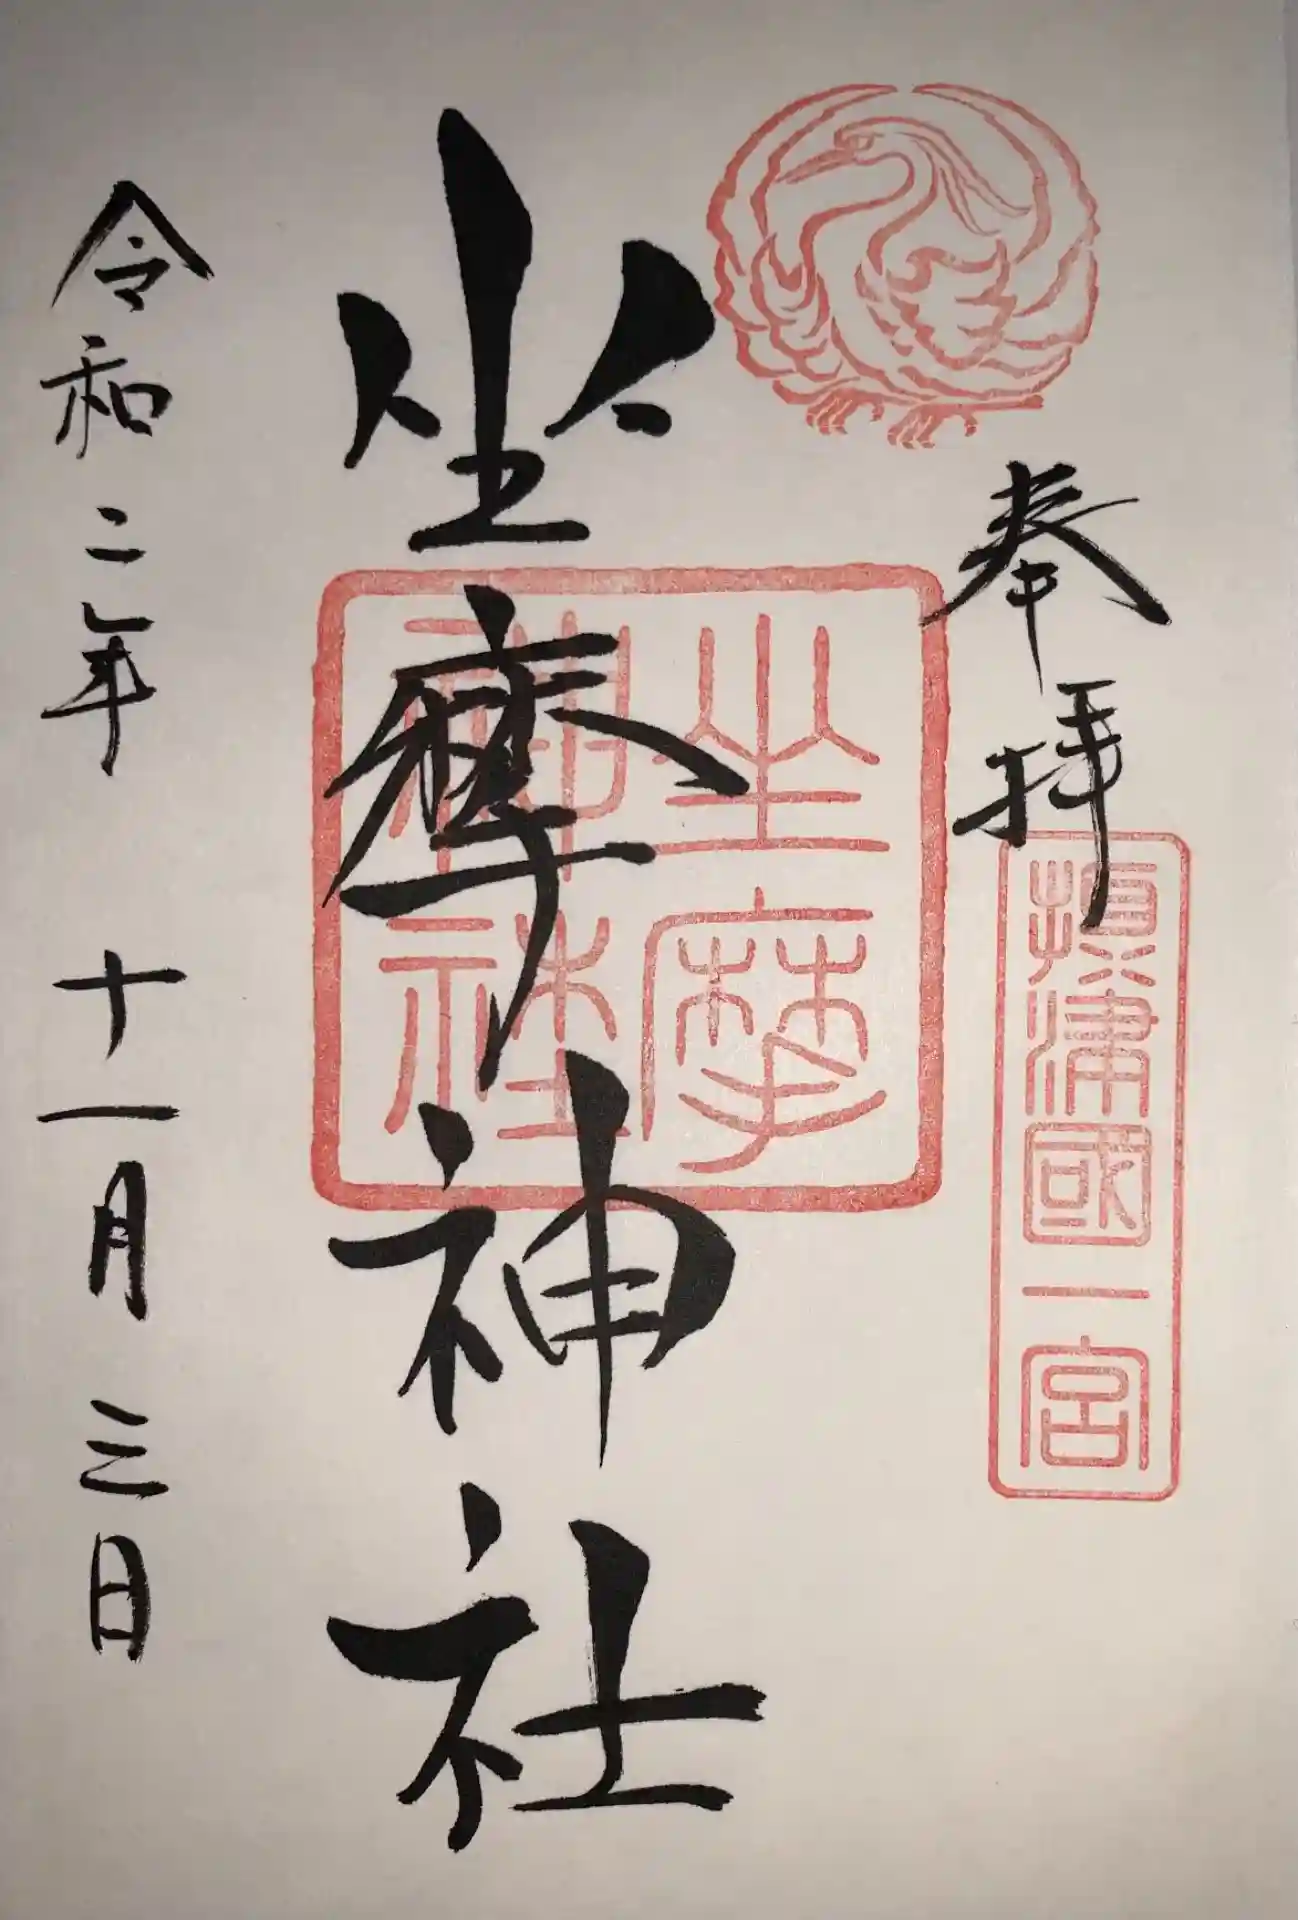 奉拝
摂津國一宮
坐摩神社
坐摩
神社
令和二年十一月三日